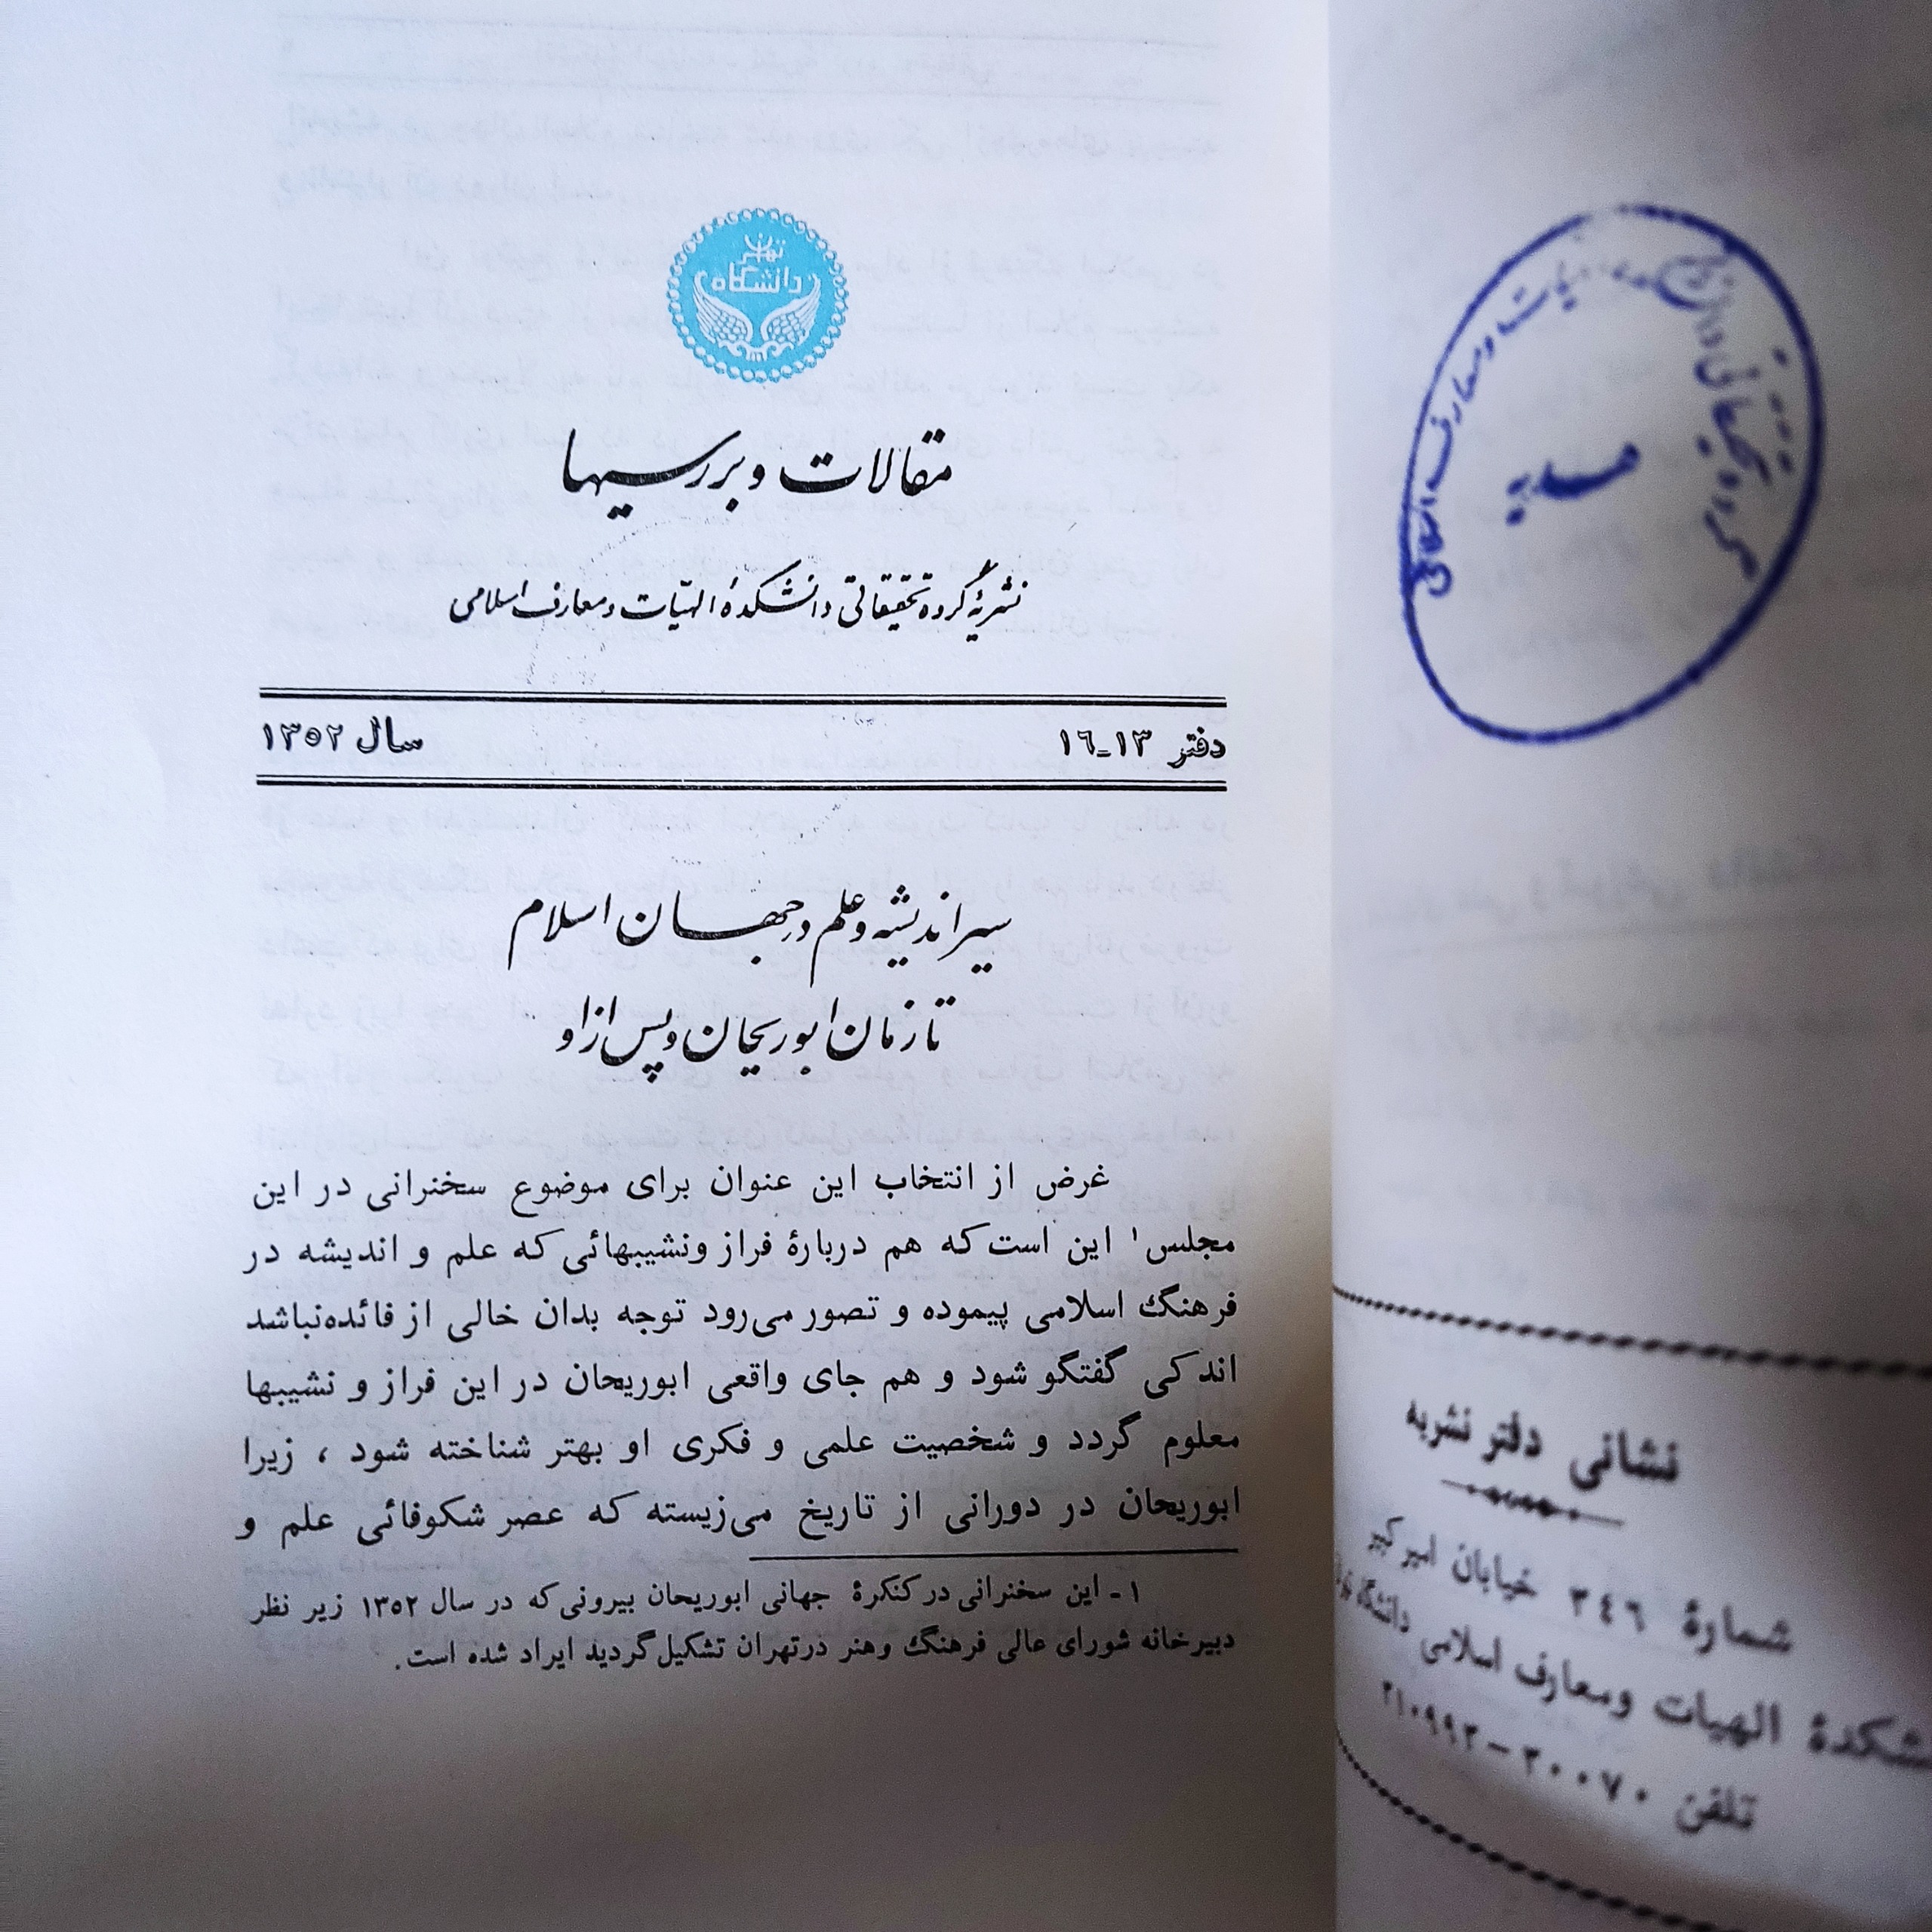 تهران
دانشگاه
مقالات و بررسیها
نشریهٔ گروه تحقیقاتی دانشکدهٔ الهیّات و معارف اسلامی
دفتر ۱۳ـ۱۶
سال ۱۳۵۲
سیر اندیشه و علم در جهان اسلام
تا زمان ابوریحان و پس از او
غرض از انتخاب این عنوان برای موضوع سخنرانی در این
مجلس۱ این است که هم دربارهٔ فراز ونشیبهائی که علم و اندیشه در
فرهنگ اسلامی پیموده و تصور می‌رود توجه بدان خالی از فائده‌نباشد
اندکی گفتگو شود و هم جای واقعی ابوریحان در این فراز و نشیبها
معلوم گردد و شخصیت علمی و فکری او بهتر شناخته شود ، زیرا
ابوریحان در دورانی از تاریخ می‌زیسته که عصر شکوفائی علم و
۱ ـ این سخنرانی در کنکرهٔ جهانی ابوریحان بیرونی که در سال ۱۳۵۲ زیر نظر
دبیرخانه شورای عالی فرهنگ وهنر درتهران تشکیل گردید ایراد شده است.
گروه تحقیقاتی
الهیات و معارف اسلامی
هدیه
نشانی دفتر نشریه
شمارهٔ ۳٤٦ خیابان امیرکبیر
الهیات ومعارف اسلامی دانشگاه
تلفن ۳۰۰۷۰ – ۳۱۰۹۹۳